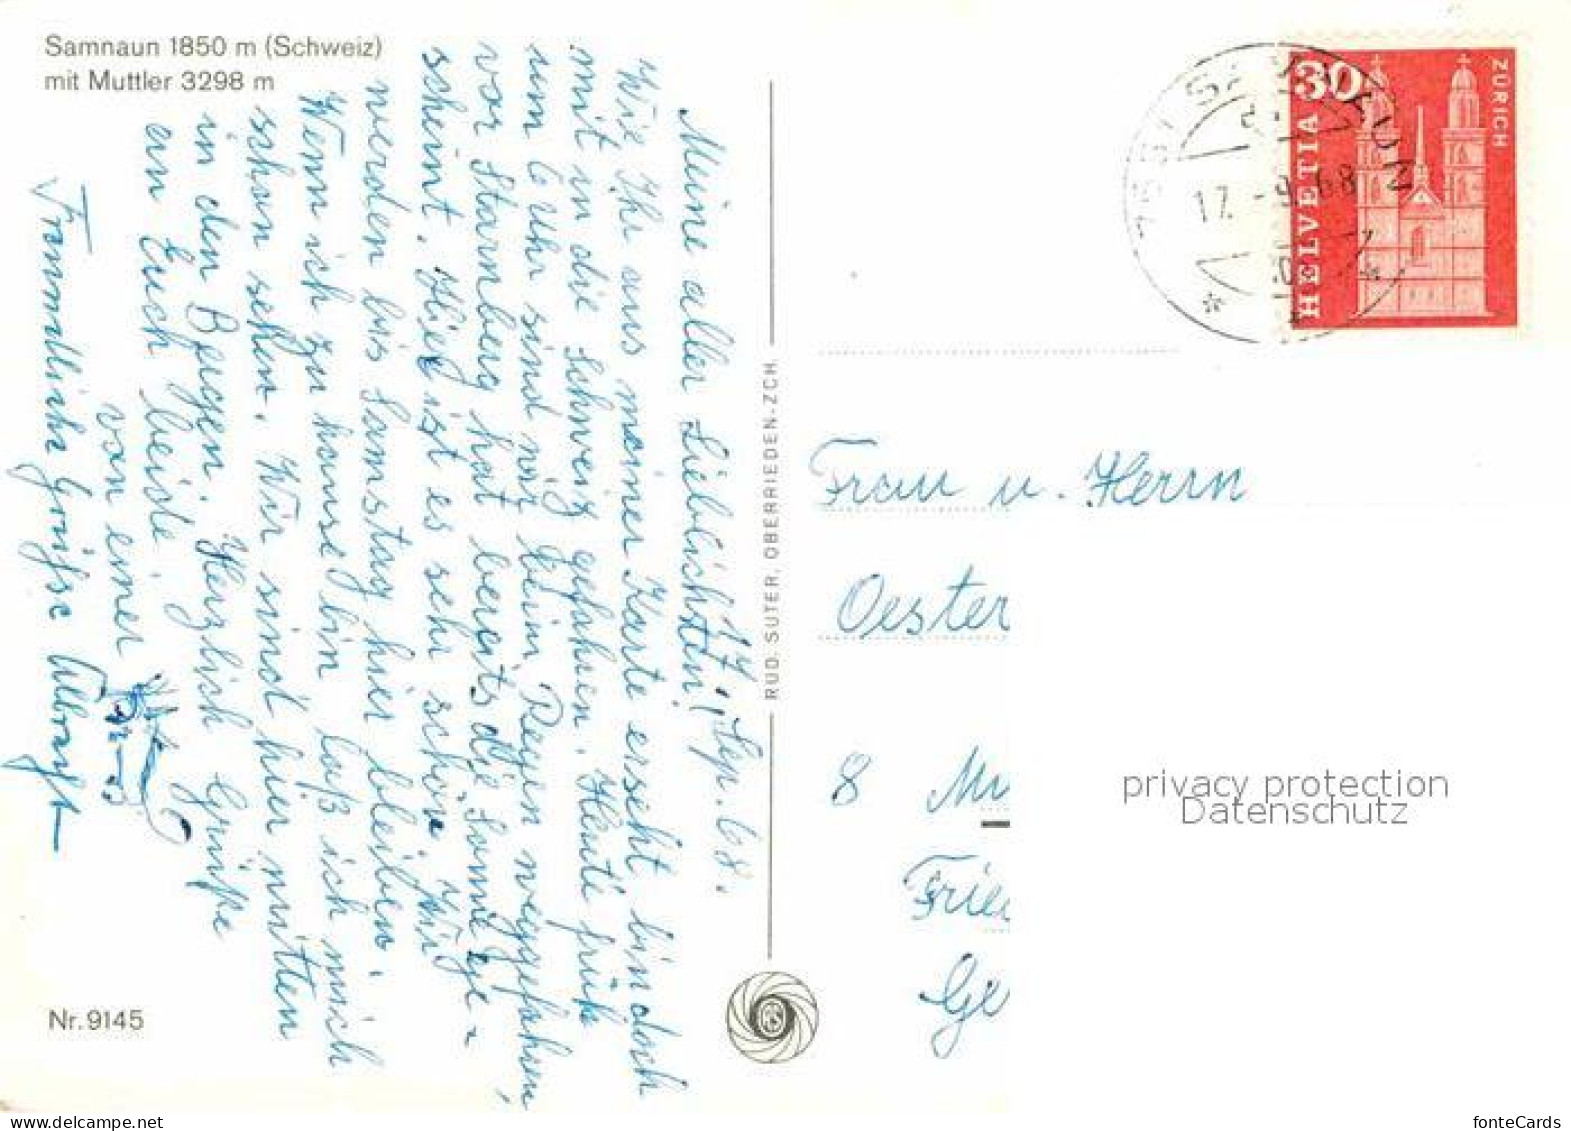 Samnaun 1850 m (Schweiz)
mit Muttler 3298 m
17. Sep. 68.
Meine aller Lieblichsten!
Wie Ihr aus meiner Karte erseht bin doch
mit in die Schweiz gefahren. Heute früh
um 6 Uhr sind wir beim Regen weggefahren,
vor Starnberg hat bereits die Sonne ge-
scheint. Hier ist es sehr schön. Wir
werden bis Samstag hier bleiben.
Wenn ich zu hause bin laß ich mich
schon sehen. Wir sind hier mitten
in den Bergen. Herzlich Grüße
an Euch beide.
von einer
Freundliche Grüsse
Nr. 9145
RUD. SUTER, OBERRIEDEN-ZCH.
HELVETIA
30
ZÜRICH
SAMNAUN
17.-9.68
Frau u. Herrn
Oester
8 Mü
Frie
Ge
privacy protection
Datenschutz
My eBay Store
fonteCards